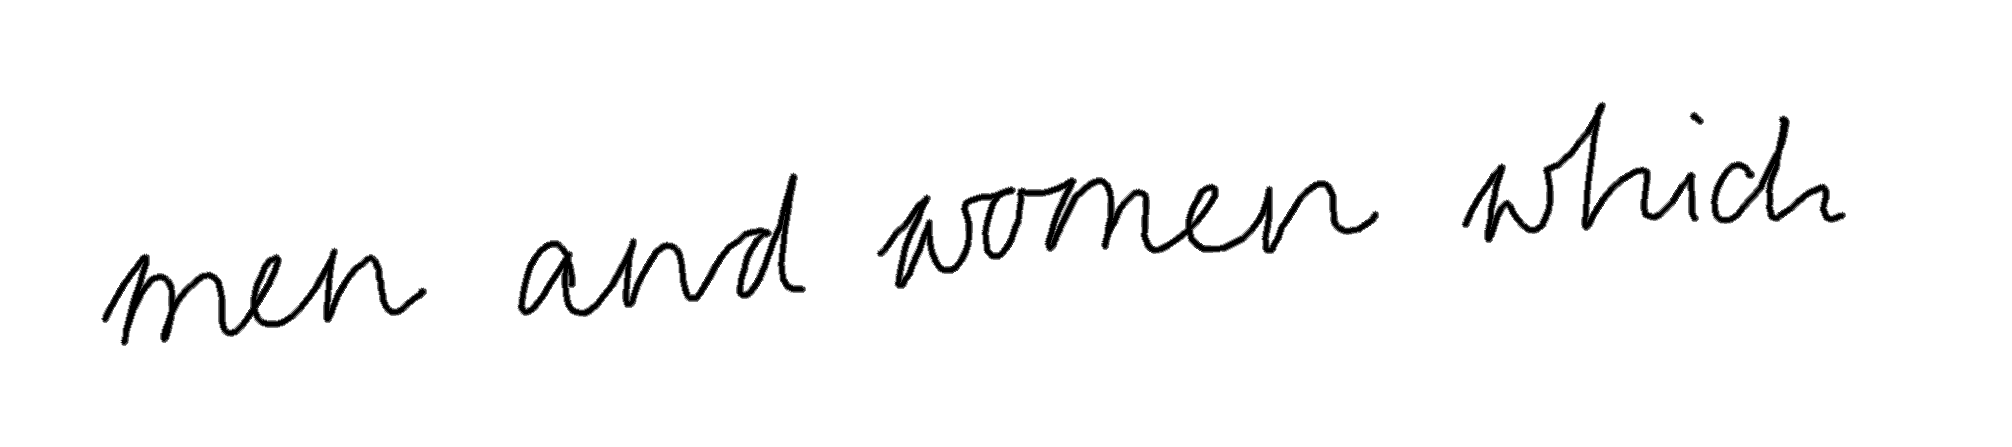 men and women which